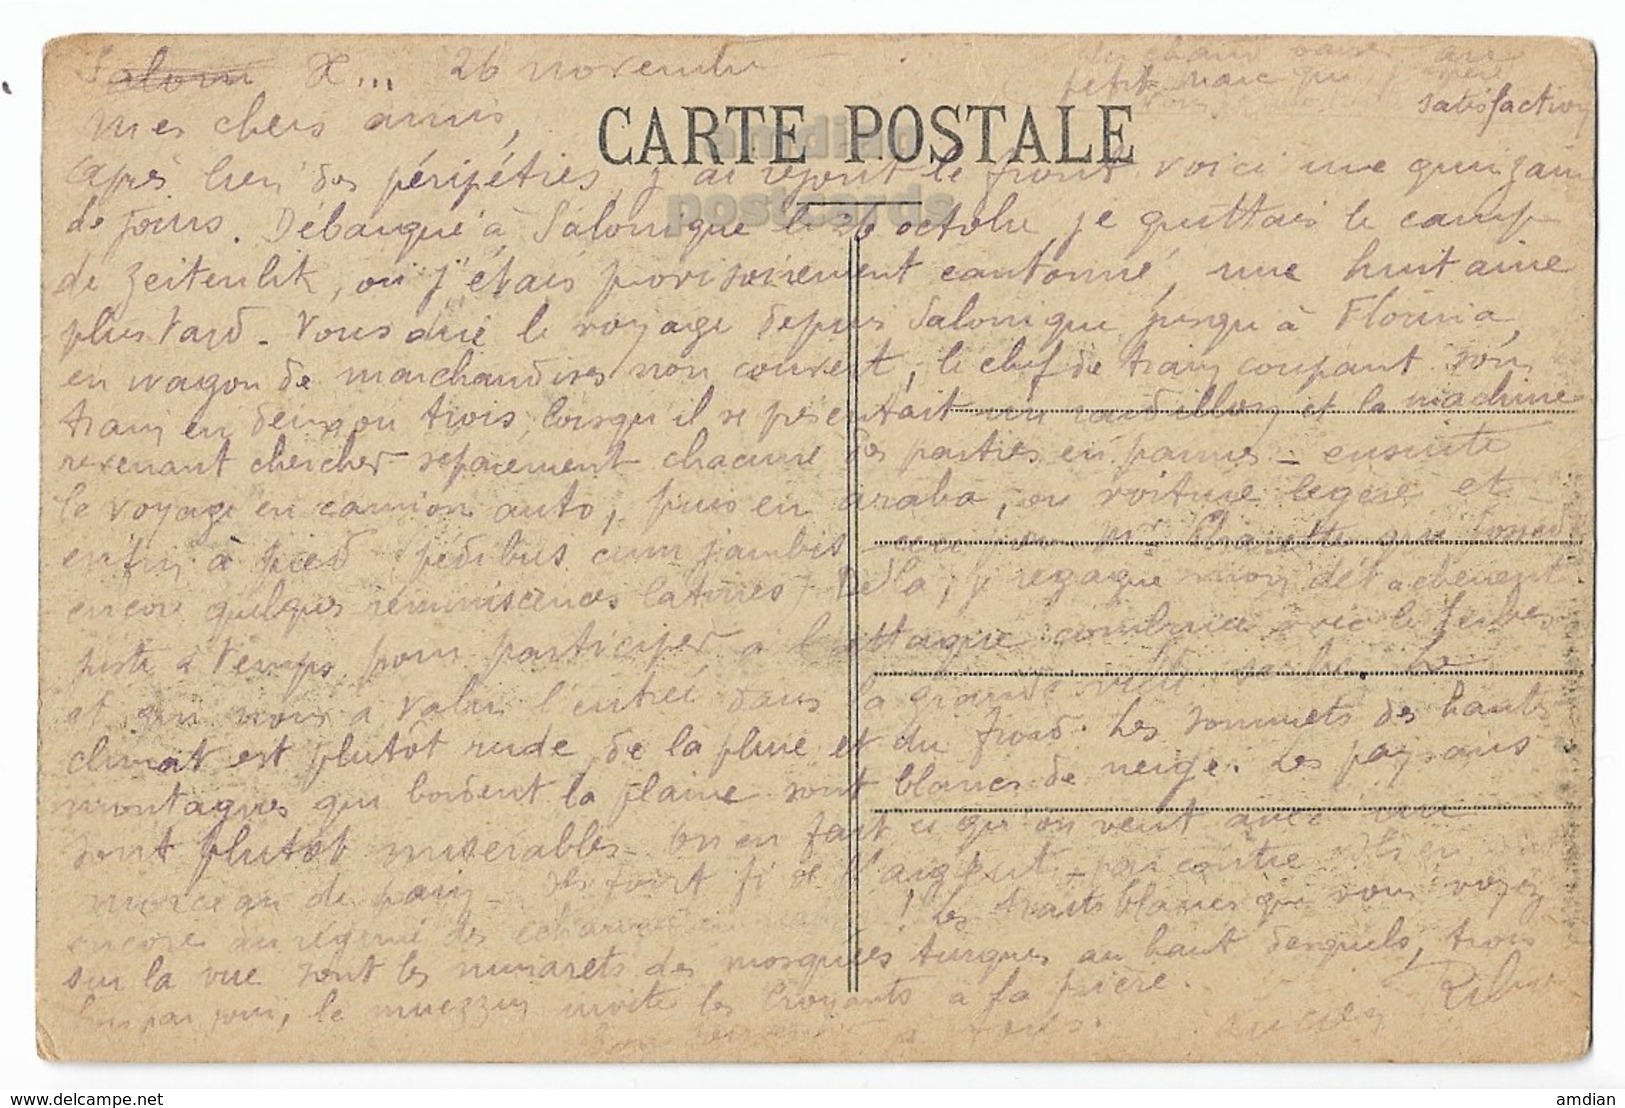 X... 26 novembre
Mes chers amis,
CARTE POSTALE
amdian
postcards
satisfaction
après bien des péripéties, j'ai rejoint le front voici une quinzaine
de jours. Débarqué à Salonique le 26 octobre, je quittais le camp
de Zeitenlik, où j'étais provisoirement cantonné, une huitaine
plus tard. Vous dire le voyage depuis Salonique jusqu'à Florina,
en wagon de marchandises non couvert, le chef de train coupant son
train en deux ou trois, lorsqu'il se présentait un raidillon et la machine
revenant chercher séparément chacune des parties en panne - ensuite
le voyage en camion auto, puis en araba, ou voiture légère et
enfin à pied pedibus cum jambis - ceci pour Mr Charette qui
encore quelques réminiscences latines. De là, je regagne mon détachement
juste à temps pour participer à l'attaque combinée avec les Serbes
et qui nous a valu l'entrée dans la grande ville serbe. Le
climat est plutôt rude, de la pluie et du froid. Les sommets des hautes
montagnes qui bordent la plaine sont blancs de neige. Les paysans
sont plutôt misérables - on en fait ce qu'on veut avec un
morceau de pain - Ils font fi de l'argent - par contre ils en
encore au régime des Les traits blancs que vous voyez
sur la vue sont les minarets des mosquées turques au haut desquels, trois
fois par jour, le muezzin invite les Croyants à la prière.
Bon à tous.